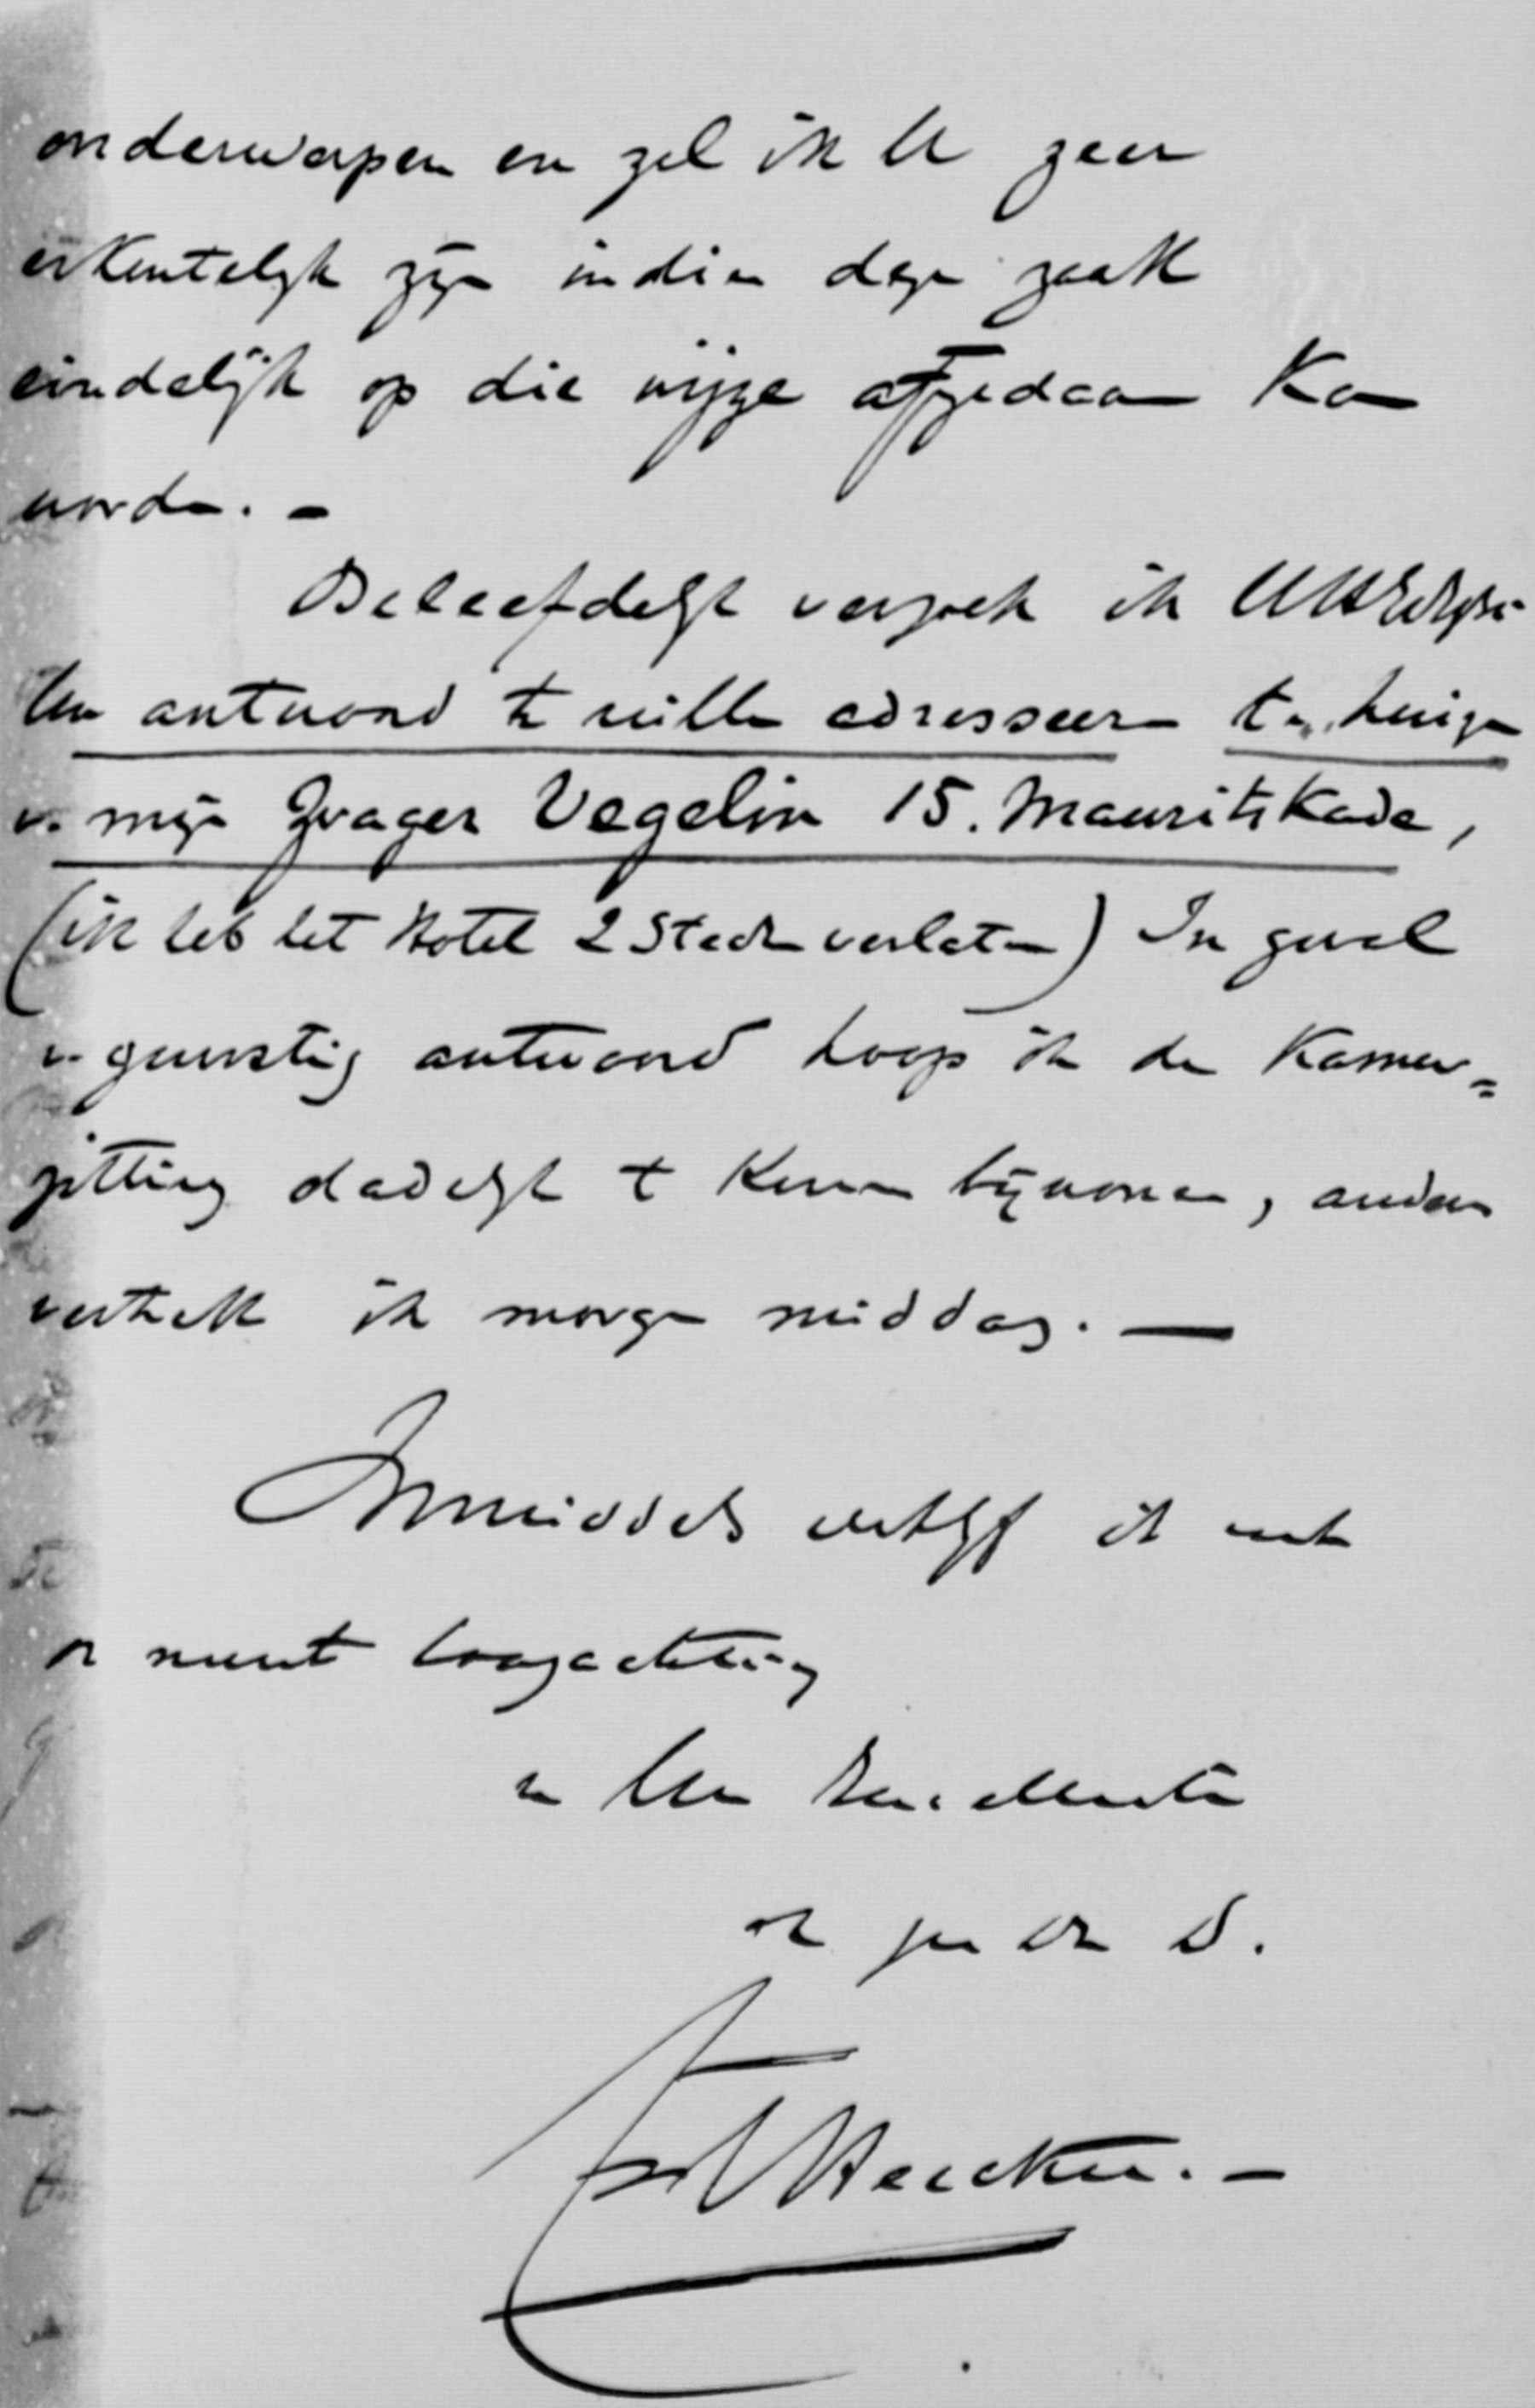 onderwerpen en zal ik U zeer
erkentelijk zijn indien deze zaak
eindelijk op die wijze afgedaan kan
worden. -
Beleefdelijk verzoek ik
Uw antwoord te willen adresseeren ten huize
v. mijn Zwager Vegelin 15. Mauritskade,
(ik heb het Hotel 2 Steden verlaten) In geval
v. gunstig antwoord hoop ik de Kamer=
zitting dadelijk te kunnen bijwonen, anders
vertrek ik morgen middag. —
Inmiddels verblijf ik met
de meest hoogachting
van Uw Excellentie